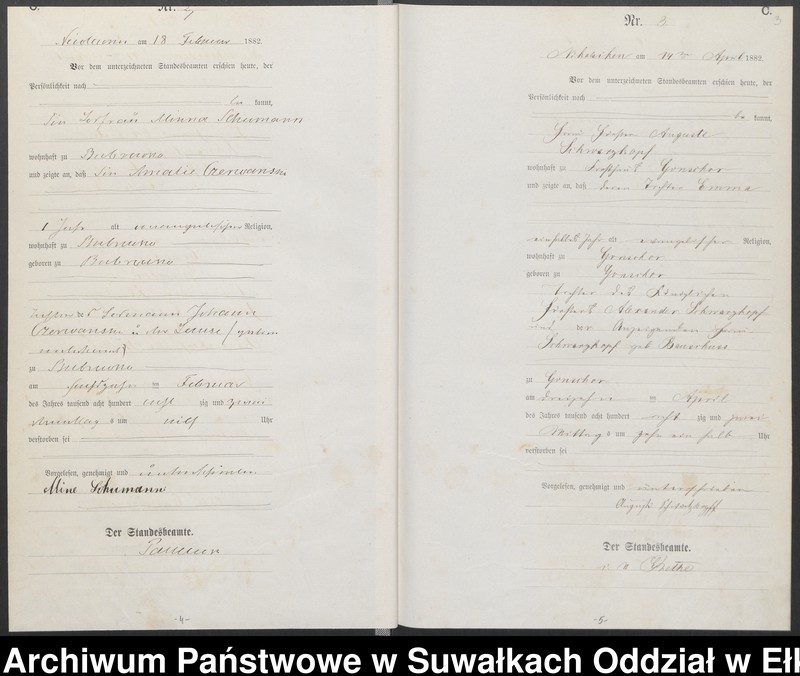 C.
Nr. 2
am 18 Februar 1882.
Vor dem unterzeichneten Standesbeamten erschien heute, der
Persönlichkeit nach
be kannt,
Minna Schumann
wohnhaft zu Bubrowno
und zeigte an, daß die Amalie Czerwanski
1 Jahr alt evangelischer Religion,
wohnhaft zu Bubrowno
geboren zu Bubrowno
Johann
Czerwanski
zu Bubrowno
am fünfzehn ten Februar
des Jahres tausend acht hundert acht zig und zwei
Vormittag s um elf Uhr
verstorben sei
Vorgelesen, genehmigt und unterschrieben
Mine Schumann
Der Standesbeamte.
-4-
C.
3
Nr. 3
am 14 ten April 1882.
Vor dem unterzeichneten Standesbeamten erschien heute, der
Persönlichkeit nach
be kannt,
Auguste
Schwarzkopf
wohnhaft zu Forsthaus Gonschor
und zeigte an, daß deren Tochter Emma
ein halbes Jahr alt evangelischer Religion,
wohnhaft zu Gonschor
geboren zu Gonschor
Tochter des Königlichen
Försters Alexander Schwarzkopf
und der Anzeigenden
Schwarzkopf geb
zu Gonschor
am dreizehn ten April
des Jahres tausend acht hundert acht zig und zwei
Mittag s um zehn ein halb Uhr
verstorben sei
Vorgelesen, genehmigt und unterschrieben
Auguste Schwarzkopf
Der Standesbeamte.
-5-
Archiwum Państwowe w Suwałkach Oddział w Ełk